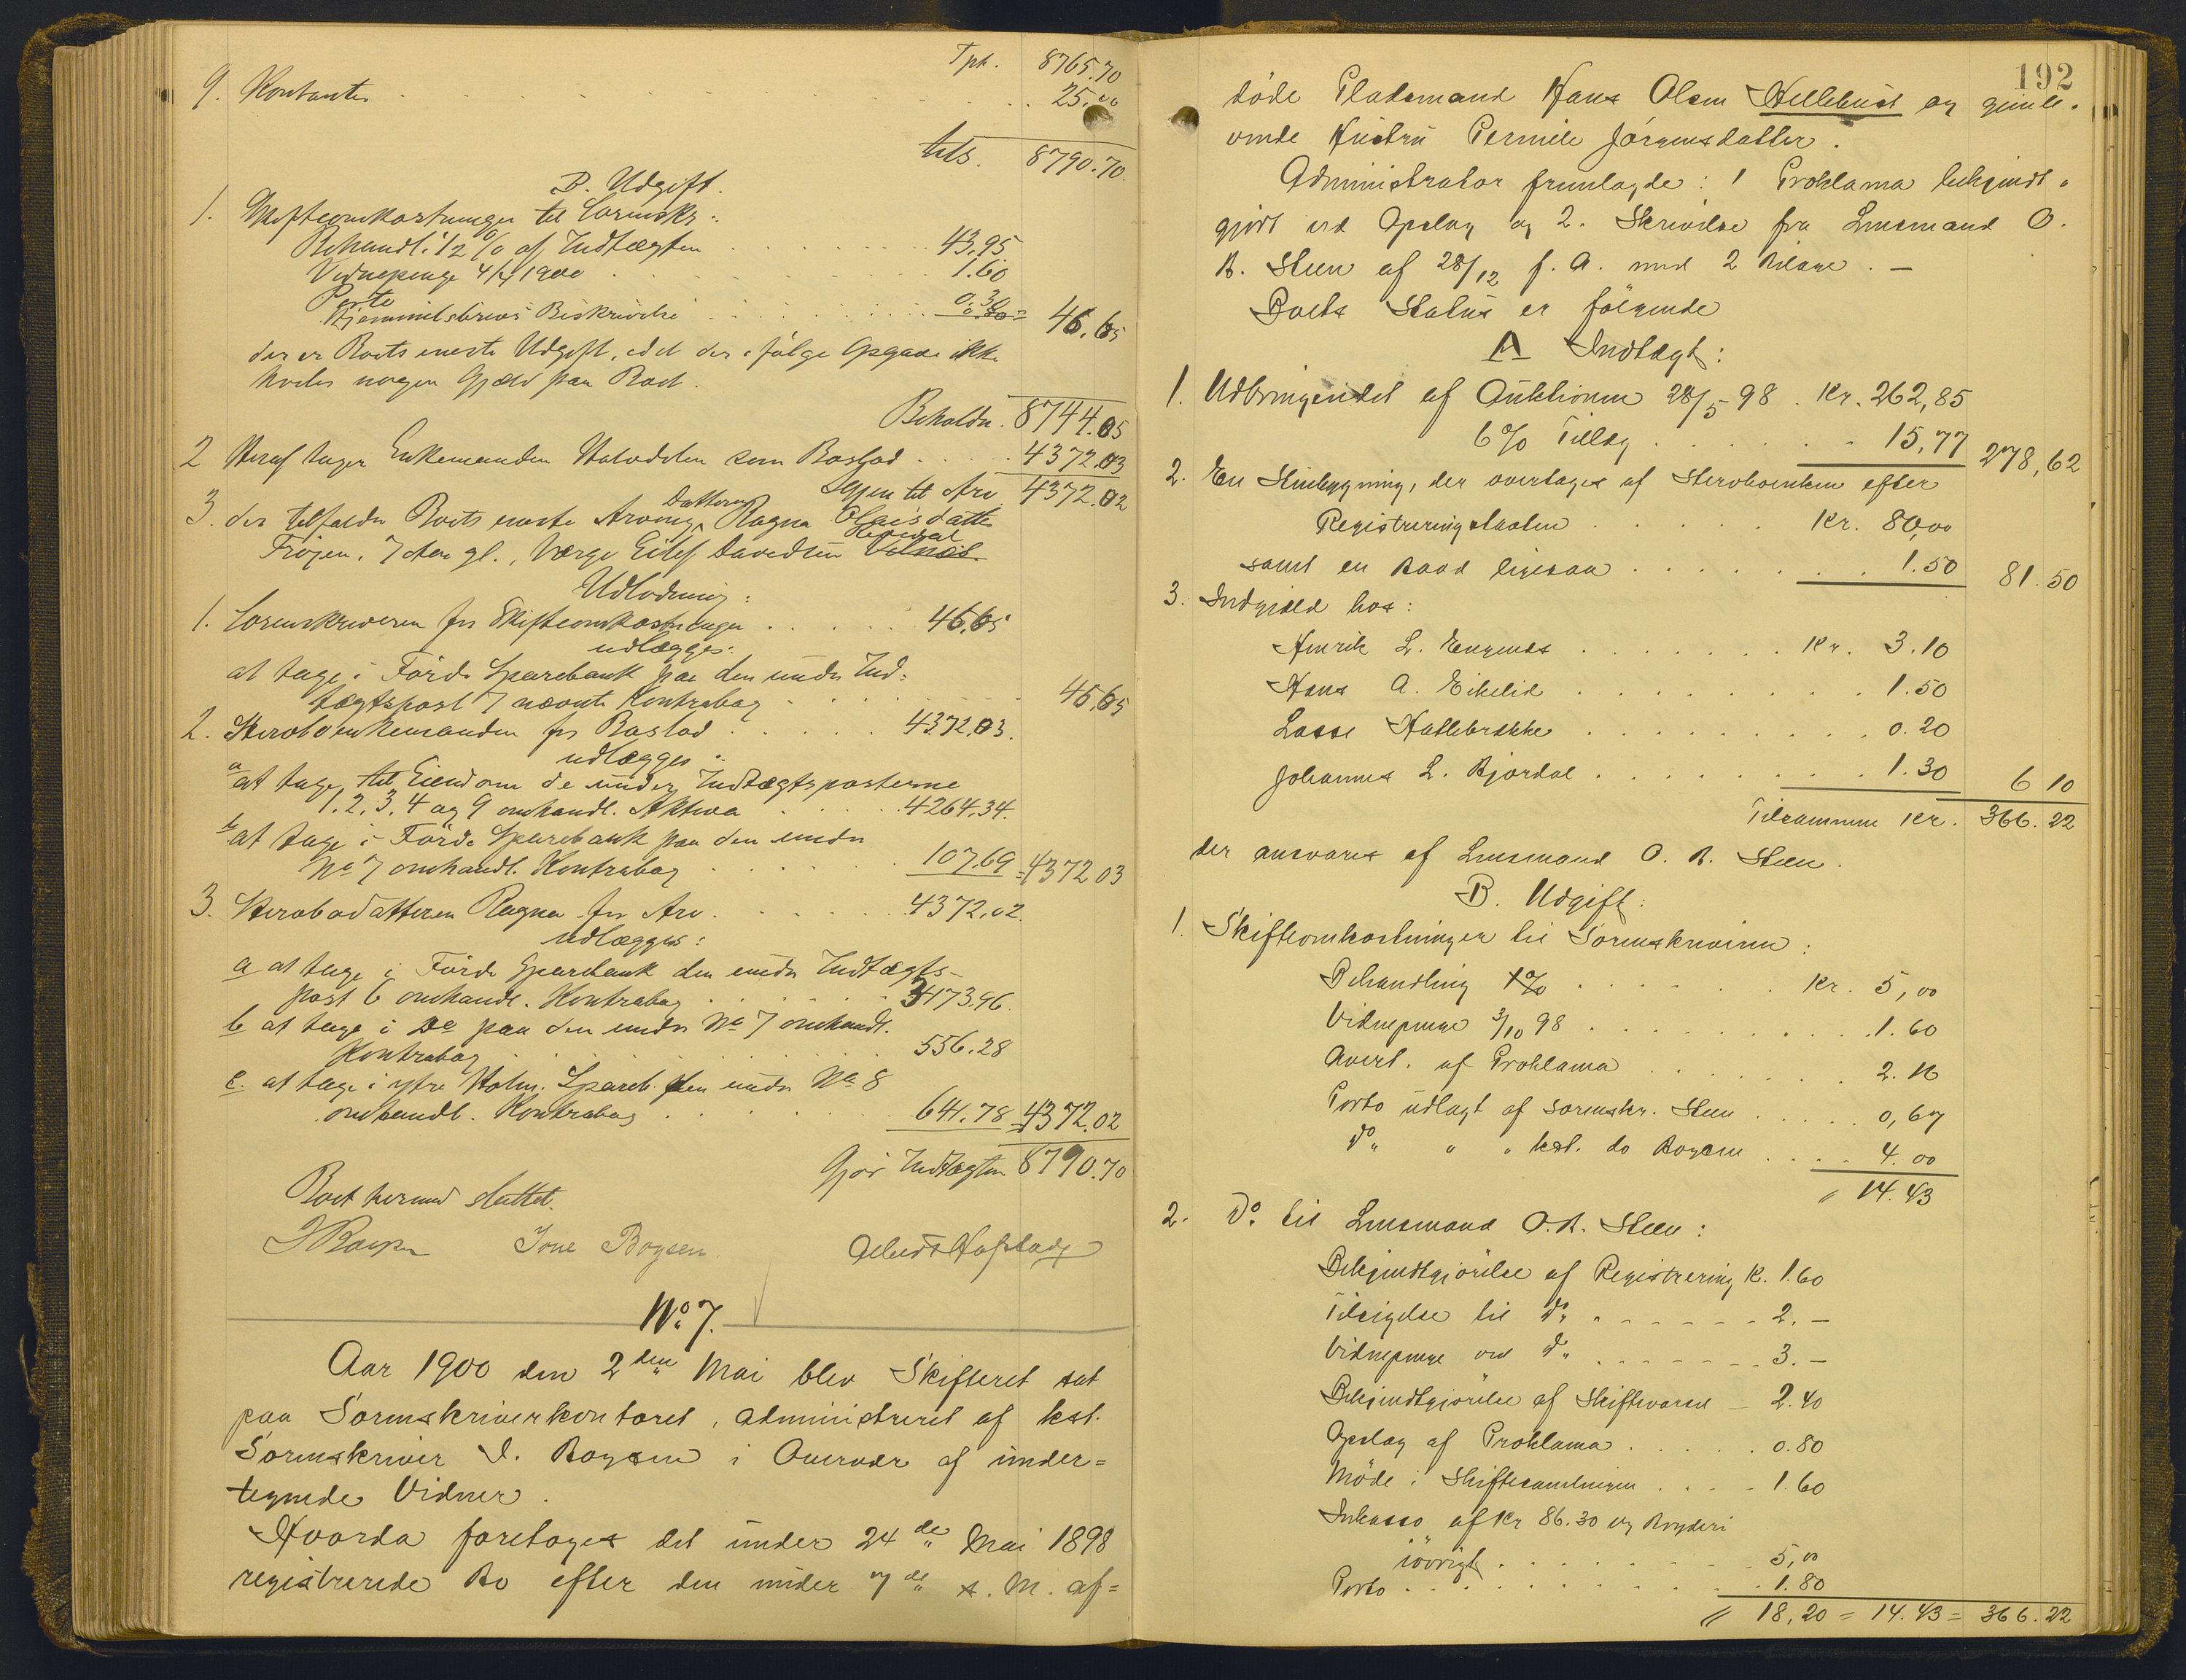 Tpt. 8765.70
9. Kontanter 25.00
tils. 8790.70.
B. Udgift.
1. Skifteomkostninger til Sorenskr.:
Behandl. 1/2 % af Indtægten 43.95
Vidnepenge 4/4 1900 1.60
Porto 0.30
Hjemmelsbrevs Beskrivelse 0.80 = 46.65
der er Boets eneste Udgift, idet der ifølge Opgave ikke
hviler nogen Gjæld paa Boet.
Beholdn. 8744.05
2 Heraf tager Enkemanden Halvdelen som Boslod 4372.03
Igjen til Arv 4372.02
3. der tilfalder Boets eneste Arving, Datteren Ragna Olaisdatter
Frøjen, 7 Aar gl., Værge Eilef Davidsen
Udlodning:
1. Sorenskriveren for Skifteomkostninger 46.65
udlægges:
at tage i Førde Sparebank paa den under Ind-
tægtspost 7 nævnte Kontrabog 46.65
2. Stervboenkemanden for Boslod 4372.03.
udlægges:
a at tage til Eiendom de under Indtægtsposterne
1. 2. 3. 4 og 9 omhandl. Aktiva 4264.34.
b at tage i Førde Sparebank paa den under
No 7 omhandl. Kontrabog 107.69 = 4372 03
3. Stervbodatteren Ragna for Arv 4372.02.
udlægges:
a at tage i Førde Sparebank den under Indtægts-
post 6 omhandl. Kontrabog 3173.96.
b at tage i Do paa den under No 7 omhandl.
Kontrabog 556.28
c. at tage i ytre Holm. Spareb. den under No 8
omhandl. Kontrabog 641.78 = 4372.02
Gjør Indtægten 8790.70
Boet hermed sluttet.
I Boysen Tone Boysen
No 7.
Aar 1900 den 2den Mai blev Skifteret sat
paa Sorenskriverkontoret, administreret af kst.
Sorenskriver I. Boysen i Overvær af under=
tegnede Vidner.
Hvorda foretoges det under 24de Mai 1898
registrerede Bo efter den under 7de s. M. af=
192
døde Pladsmand Hans Olsen Hellebust og gjenle-
vende Hustru Pernille Jørgensdatter.
Administrator fremlagde: 1 Proklama bekjendt-
gjort ved Opslag og 2. Skrivelse fra Lensmand O.
B. Steen af 28/12 f. A. med 2 Bilage. —
Boets Status er følgende
A Indtægt:
1. Udbringendet af Auktionen 28/5 98 Kr. 262,85
6 % Tillæg 15,77 278,62
2. En Stuebygning, der overtages af Stervboenken efter
Registreringstaxten Kr. 80,00
samt en Baad ligesaa 1.50 81.50
3. Indgjæld hos:
Henrik L. Engenes Kr. 3.10
Hans A. Eikelid 1.50
Lasse Hatlebrekke 0.20
Johannes L. Bjordal 1.30 6 10
Tilsammen Kr. 366.22
der ansvares af Lensmand O. B. Steen.
B. Udgift:
1. Skifteomkostninger til Sorenskriveren:
Behandling 1% Kr. 5,00
Vidnepenge 3/10 98 1.60
Avert. af Proklama 2.16
Porto udlagt af Sorenskr. Steen 0,67
Do " " kst. do Boysen 4.00
" 14.43
2. Do til Lensmand O. B. Steen:
Bekjendtgjørelse af Registrering K. 1.60
Tilsigelse til Do 2. —
Vidnepenge ved Do 3. —
Bekjendtgjørelse af Skiftevarsel — 2.40
Opslag af Proklama 0.80
Møde i Skiftesamlingen 1.60
Inkasso af Kr 86.30 og Bryderi
iøvrigt 5,00
Porto 1.80
" 18,20 = 14.43 = 366.22